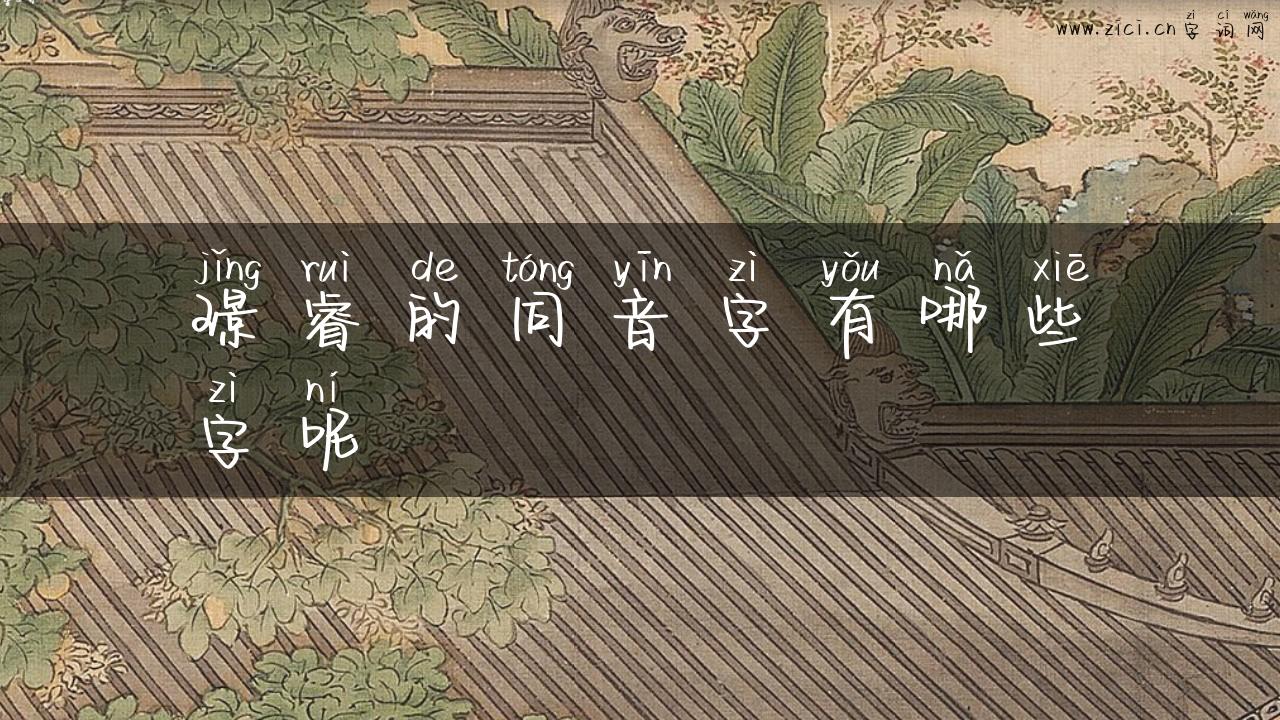 zì cí wǎng
www.zici.cn 字词网
jǐng ruì de tóng yīn zì yǒu nǎ xiē
璟睿的同音字有哪些
zì ní
字呢